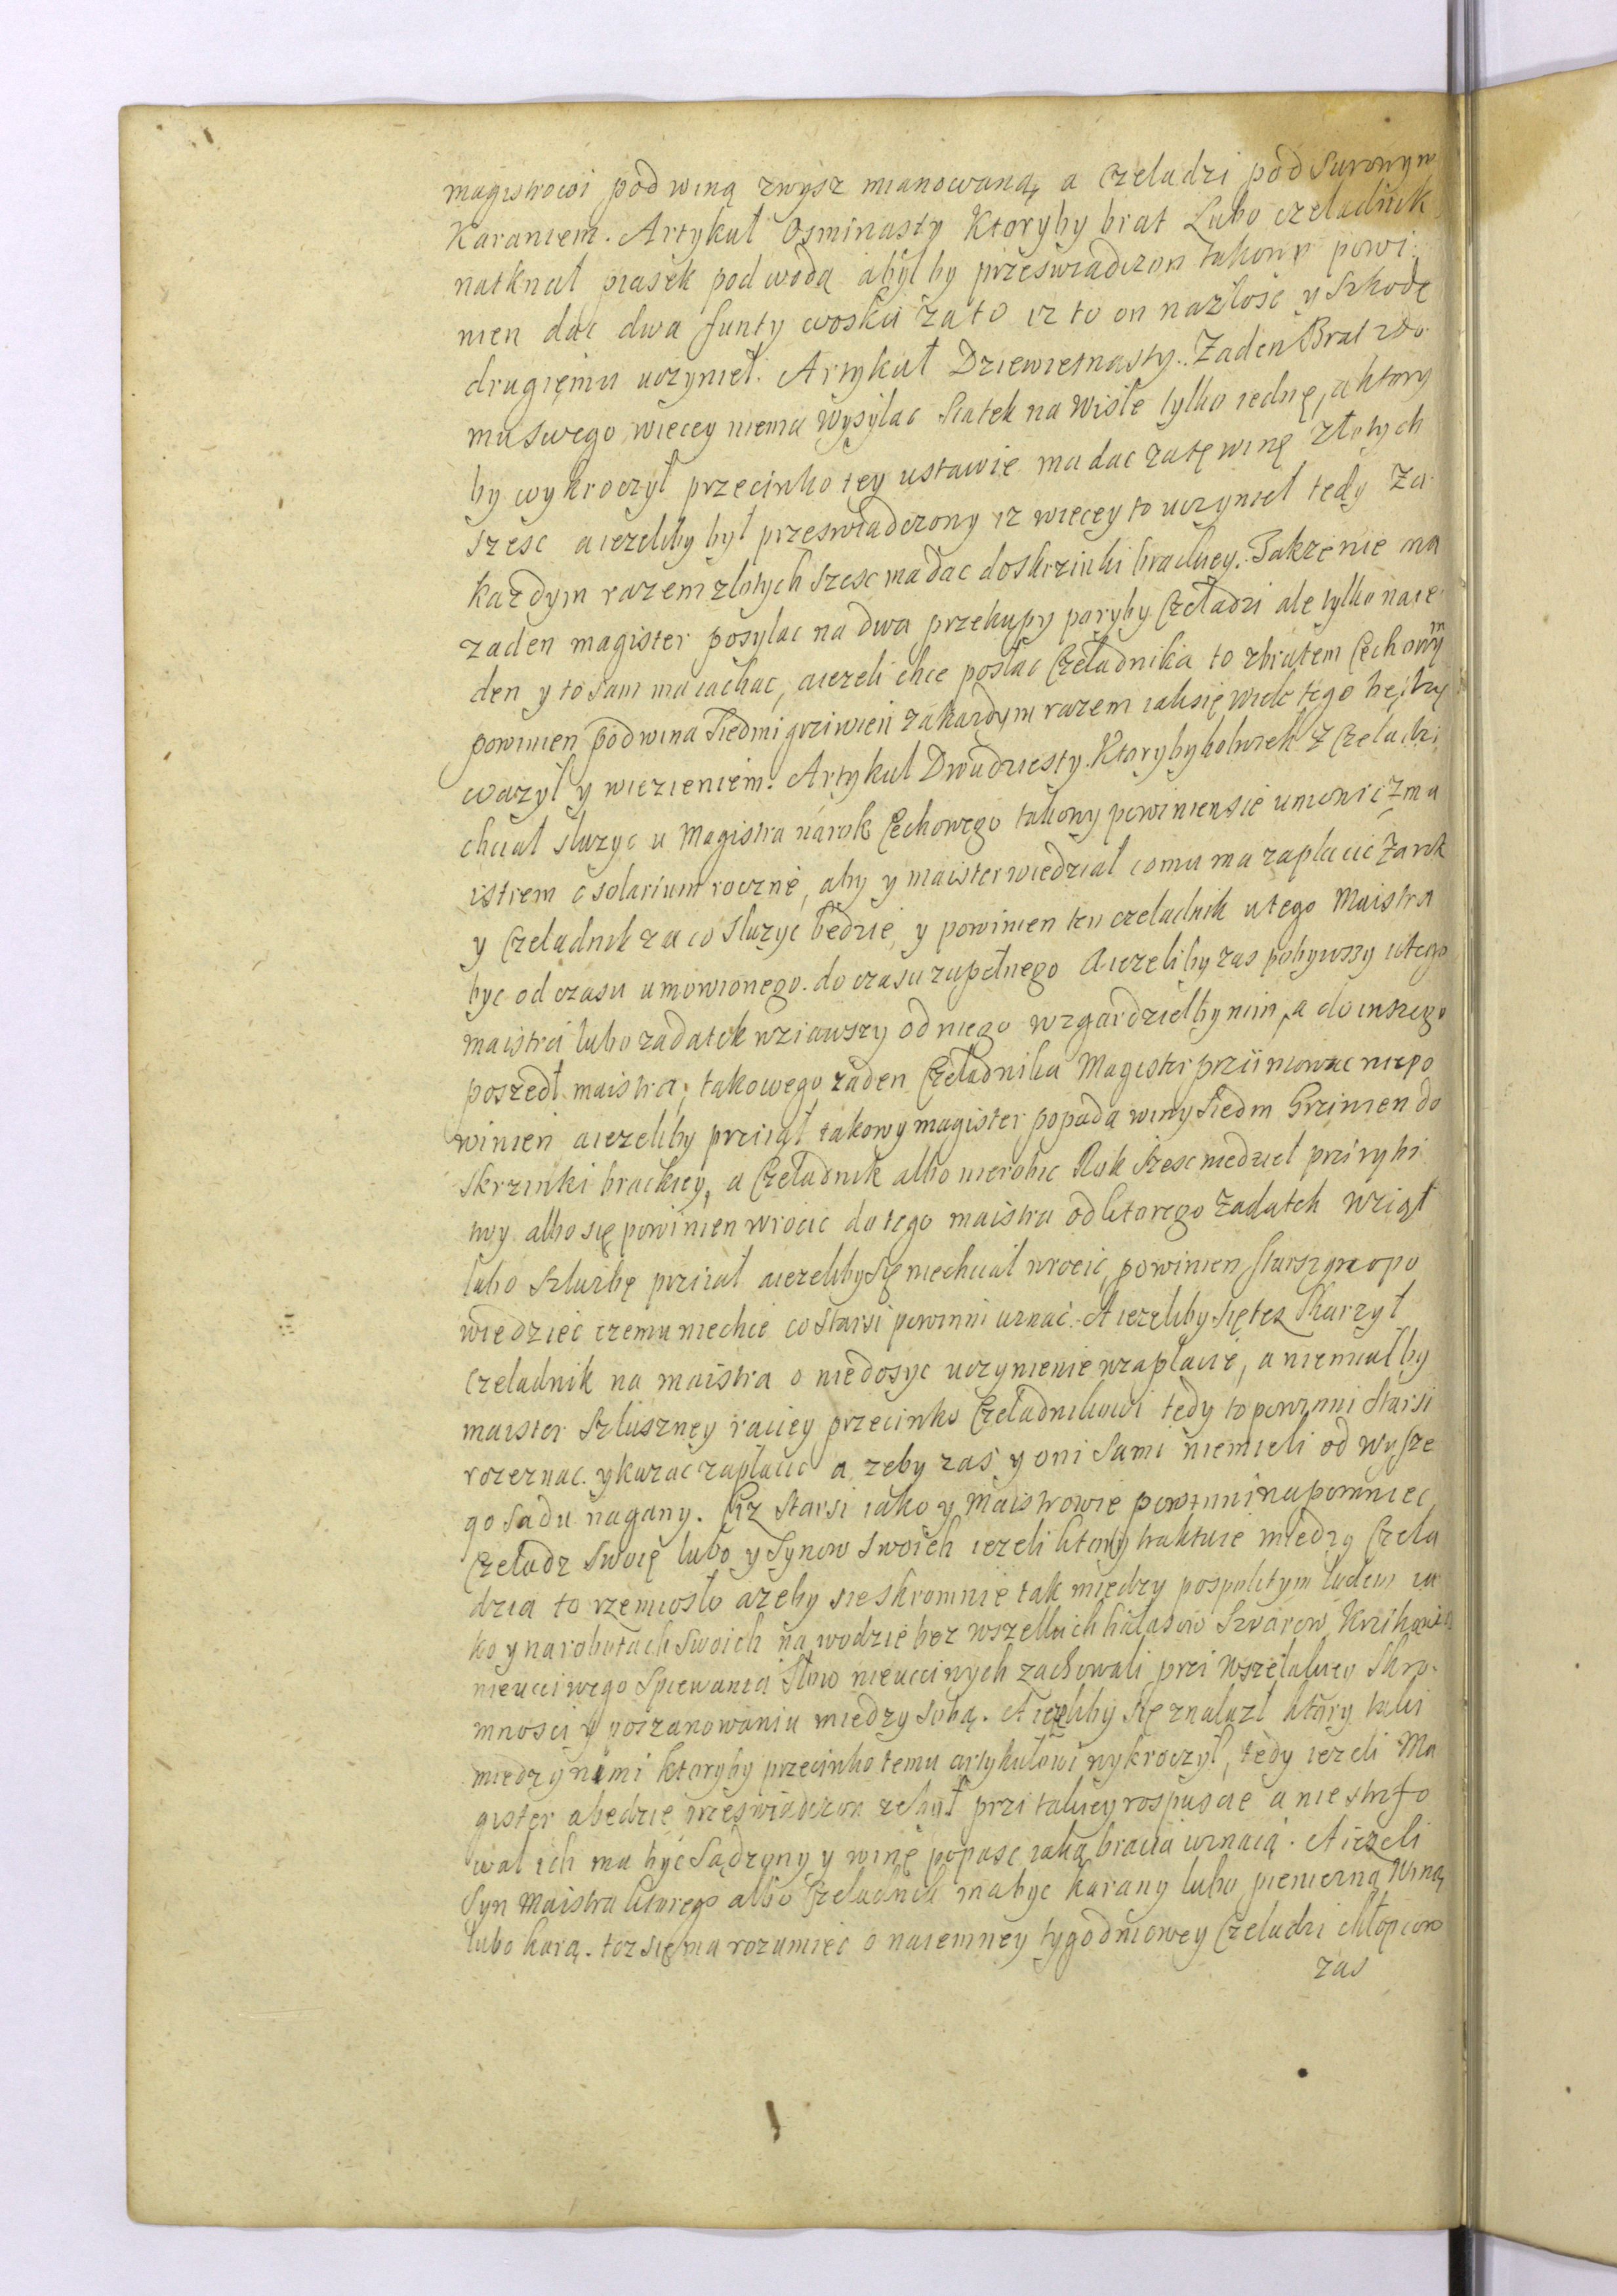 magistrowi pod winą zwysz mianowaną, a Czeladzi pod Surowym
Karaniem. Artykuł Osminasty Ktoryby brat Lubo czeladnik
natknał piasek pod wodą abÿł by przeświadczon takowy powi:
nien dac dwa funty wosku za to iz to on nazłośc y szkodę
drugięmu uczynieł. Artykuł Dziewietnasty. Zaden Brat zdo
mu swego wiecey niema wysyłac Siatek na Wiśłe tylko iednę, a ktory
by wykroczył przecinko tey ustawie ma dac zatę winę złotych
szesc a iezeliby był przeświadczony iz wiecey to uczynieł tedy Za
kazdym razem złotych szesc ma dac do Skrzinki brackiey. Takze nie ma
zaden magister posyłac na dwa przekupy poryby Czeladzi ale tylko na ie
den y to sam ma iachac, aiezeli chce posłac Czeladnika to zbratem Cechowym
powinien pod wina Siedmi grziwien zakazdym razem iak się wiele tego bę by
wazył y wiezieniem. Artykuł Dwudziesty. Ktorybykolwiek z Czeladzi
chciał słuzyc u Magistra narok Cechowego takowy powinien sie umowic zma
istrem o solarium roczne, aby y maister wiedział iomu ma zapłacic Zarok
y Czeladnik za co słuzyc będzie, y powinien ten czeladnik utego Maistra
byc od czasu umowionego. do czasu zupełnego Aiezeliby zas pobywszy utego
maistra lubo zadatek wziawszy od niego wzgardziełby nim, a do inszego
poszedł maistra, takowego zaden Czeladnika Magister prziimowac niepo
winien aiezeliby prziiął takowy magister popada winy siedm Grziwien do
skrzinki brackiey, a Czeladnik albo nierobic Rok szesc niedziel przi rybi
twy albo się powinien wrocic do tego maistra od ktorego zadatek wziął
lubo szłuzbę prziiał aiezeliby się niechciał wrocic, powinien starszym opo
wiedziec czemu niechce co starsi powinni uznac. A iezeliby się tez skarzył
Czeladnik na maistra o niedosyc uczynienie wzapłacie, a niemiał by
maister szłuszney raciey przecinko Czeladnikowi tedy to powinni starsi
rozeznac y kazac zapłacic a zeby zas y oni sami niemieli od wysze
go sadu nagany. Ciz starsi iako y Maistrowie powinni napomniec
Czeladz swoię lubo y synow swoich iezeli ktory traktuie miedzy Czela
dzia to rzemiosło azeby sie skromnie tak między pospolitym ludem ia
ko y narobotach swoich na wodzie bez wszelkich hałasow Szwarow Krzikania
nieucciwego spiewania słow nieucciwych zachowali przi wszelakiey skro
mnosci y poszanowaniu miedzy sobą. A iezeliby się znalazł ktory taki
miedzy nimi ktoryby przecinko temu artykułowi wykroczył, tedy iezeli Ma
gister a bedzie przeswiadczon ze był przi takiey rospuscie a nie strofo
wał ich ma byc sądzony y winę popasc iaką bracia uznaią. A iezeli
Syn Maistra ktorego albo Czeladnik ma byc karany lubo pienieżną winą,
lubo karą. toz się ma rozumiec o naiemney tygodniowey Czeladzi chłopcow
zas